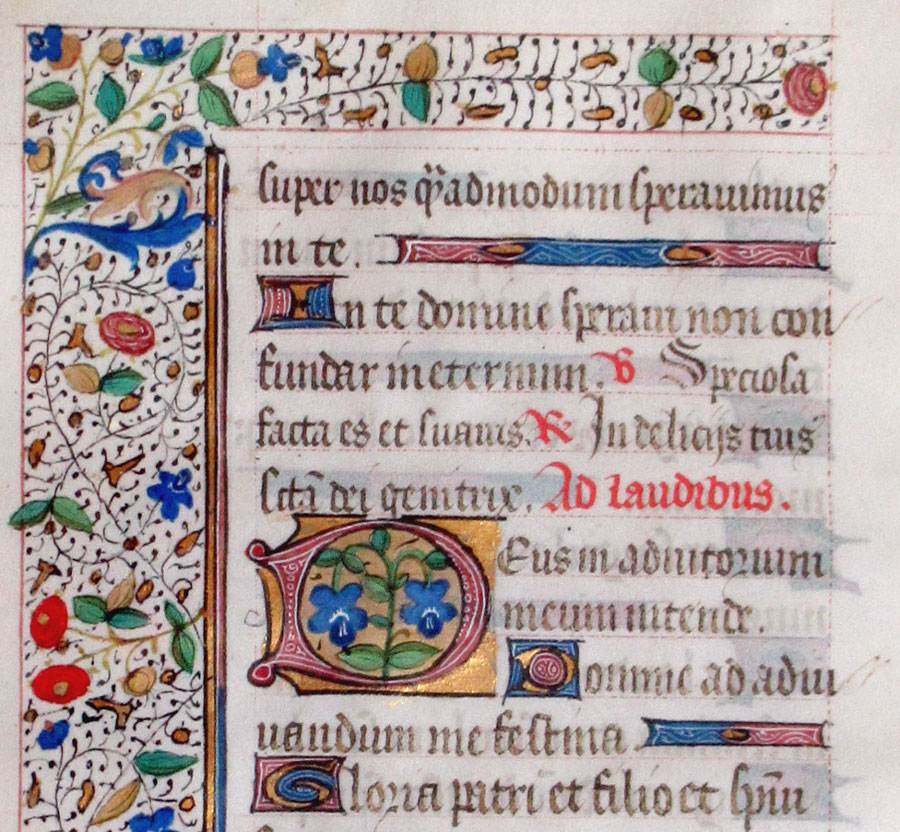 super nos q̄admodum sperauimus
in te.
In te domine speraui non con
fundar in eternum. V Speciosa
facta es et suauis. R In delicijs tuis
sctā dei genitrix. Ad laudibus.
DEus in adiutorium
meum intende.
Domine ad adiu
uandum me festina
Gloria patri et filio et spūi